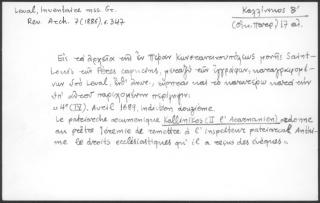 Laval, Inventaire mss. Gr.
Rev. Arch. 7 (1886), σ. 347
Καλλίνικος Β'
(οἰκ. πατρ.) 17 αἰ.
Εἰς τὰ ἀρχεῖα τῆς ἐν Πέραν Κωνσταντινουπόλεως μονῆς Saint-
Louis τῶν Pères capucins, μεταξὺ τῶν ἐγγράφων, καταγραφομέ-
νων ὑπὸ Laval, ἔνθ' ἄνω, καὶ τὸ
ὑπ' αὐτοῦ παρεχόμενον
"4° (IV). Avril 1689, indiction douzième.
Le patriarche œcumenique Kallinikos (II l'Acarnanien) ordonne
au prêtre Jérémie de remettre à l'inspecteur patriarcal Anthi-
me les droits ecclésiastiques qu'il a reçus des évêques"